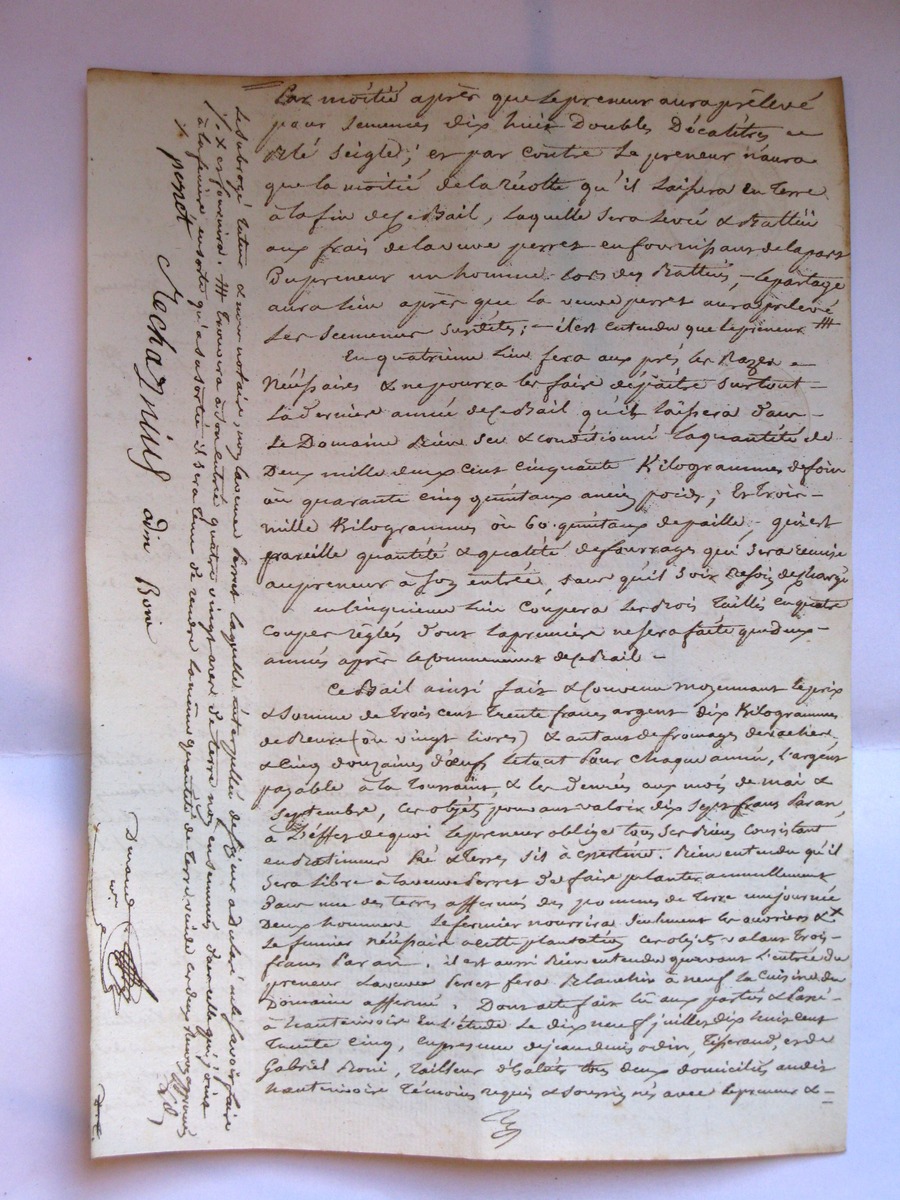 Par moitié après que le preneur aura prélevé
pour semences dix huit Doubles Décalitres en
Blé Seigle; et par contre le preneur n'aura
que la moitié de la récolte qu'il laissera en terre
à la fin de ce Bail, laquelle sera levée & Battue
aux frais de la veuve perret en fournissant de la part
Du preneur un homme lors des Battues, - le partage
aura lieu après que la veuve perret aura prélevé
les semences susdites; - il est entendu que le preneur #
En quatrième lieu fera aux prés les Razes
Nécessaires & ne pourra les faire dépaitre surtout
La Dernière année de ce Bail, qu'il laissera dans
le Domaine Bien sec & conditionné la quantité de
Deux mille deux cent cinquante Kilogrammes de foin
ou quarante cinq quintaux ancien poids; Et trois
mille Kilogrammes ou 60 quintaux de paille, qui est
pareille quantité & qualité de fourrages qui sera remise
au preneur à son entrée,
en Cinquième lieu Coupera les Bois Taillis en quatre
Coupes réglés dont la première ne sera faite que deux
années après le commencement de ce Bail -
Ce Bail ainsi fait & Convenu moyennant le prix
& Somme de Trois cent Trente francs argent dix Kilogrammes
de Beure (ou vingt livres) & autant de fromages
& Cinq douzaines d'œufs le tout Pour chaque année, l'argent
payable à la Toussaint, & les Denrées aux mois de mai &
septembre, ces objets pouvant valoir dix sept francs Par an
à l'éffet de quoi le preneur oblige tous ses Biens Consistant
en Batiments Pré & Terres sis à Bien entendu qu'il
Sera Libre à la veuve Perret De faire planter annuellement
Dans une des terres affermés des pommes de Terre une journée
Deux hommes Le fermier nourrira seulement les ouvriers &
Le fumier nécessaire à cette plantation ces objets valant Trois
francs Par an. il est aussi Bien entendu qu'avant l'entrée du
preneur La veuve Perret fera Blanchir à neuf la Cuisine du
Domaine affermé. Dont acte fait lû aux parties & Passé
à hauterivoire En l'étude Le dix neuf juillet dix huit cent
Trente Cinq, En présence de jean denis odin, Tisserand, et de
Gabriel Boni, Tailleur d'habits tous deux domiciliés audit
hauterivoire Témoins requis & Soussignés avec le preneur &
Le Subrogé Tuteur & nous notaire, non la veuve Perret laquelle interpellée de signer a déclaré ne le savoir faire
& fournira. # trouvera à son entrée quatre vingt ares de terre non ensemencés dans celle qui joint
à la fenière en sorte qu'à sa sortie il sera tenu de rendre la même quantité de Terre vuide ces deux Renvoys approuvés
perret Mechaznius odin Boni
Dumand